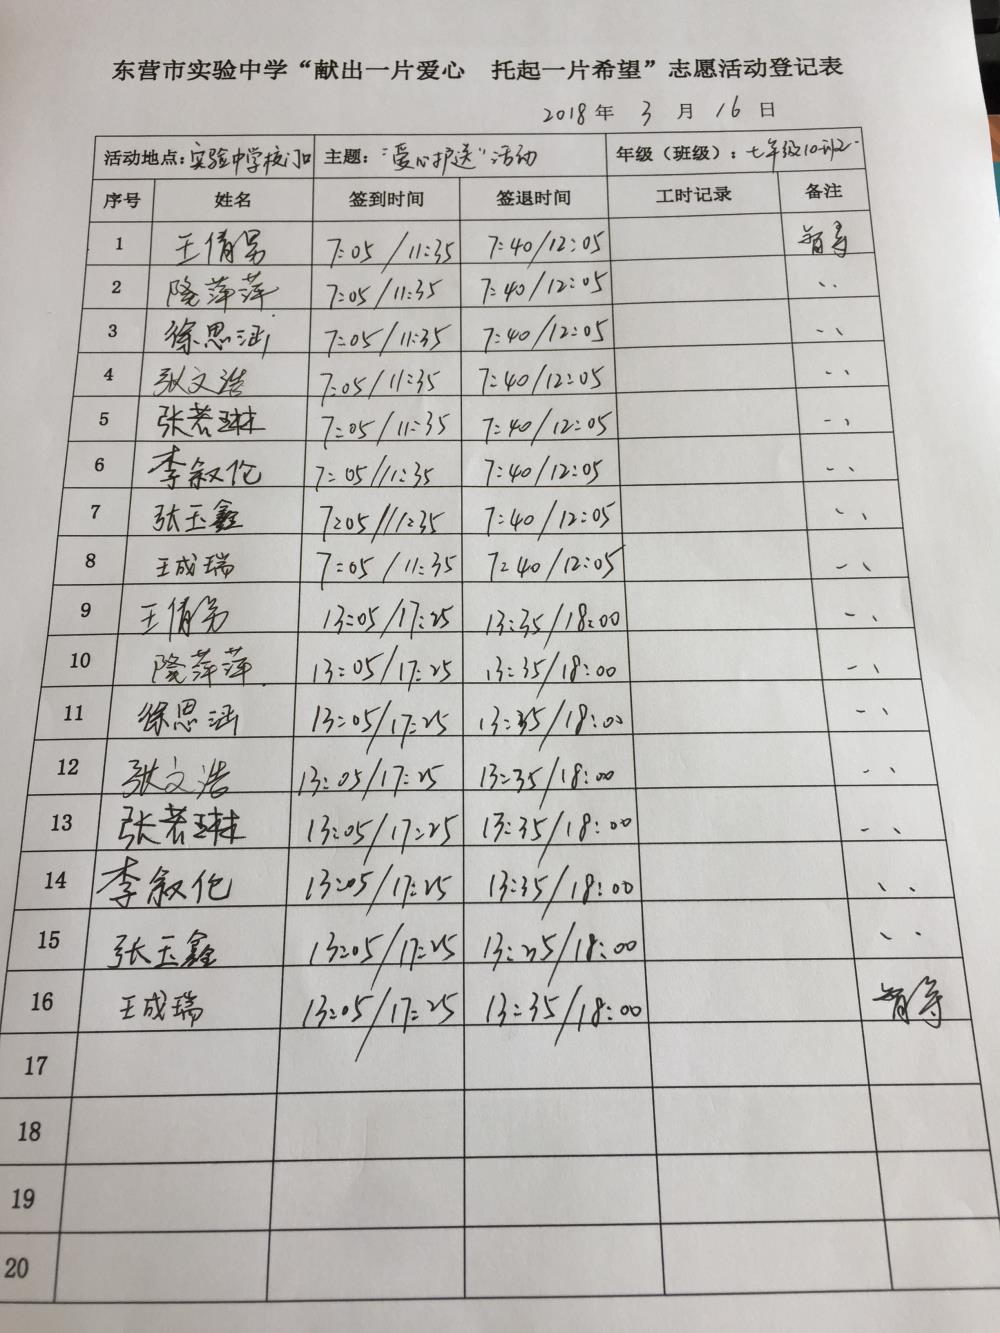 东营市实验中学“献出一片爱心 托起一片希望”志愿活动登记表
2018年 3 月 16 日
活动地点：实验中学校门口 主题：“爱心护送”活动 年级（班级）：七年级10班
序号 姓名 签到时间 签退时间 工时记录 备注
1 王倩 7:05/11:35 7:40/12:05
2 隆萍萍 7:05/11:35 7:40/12:05 、、
3 徐思涵 7:05/11:35 7:40/12:05 、、
4 张文浩 7:05/11:35 7:40/12:05 、、
5 张若琳 7:05/11:35 7:40/12:05 、、
6 李叙伦 7:05/11:35 7:40/12:05 、、
7 张玉鑫 7:05/11:35 7:40/12:05 、、
8 王成瑞 7:05/11:35 7:40/12:05 、、
9 王倩 13:05/17:25 13:35/18:00 、、
10 隆萍萍 13:05/17:25 13:35/18:00 、、
11 徐思涵 13:05/17:25 13:35/18:00 、、
12 张文浩 13:05/17:25 13:35/18:00 、、
13 张若琳 13:05/17:25 13:35/18:00 、、
14 李叙伦 13:05/17:25 13:35/18:00 、、
15 张玉鑫 13:05/17:25 13:35/18:00 、、
16 王成瑞 13:05/17:25 13:35/18:00
17
18
19
20